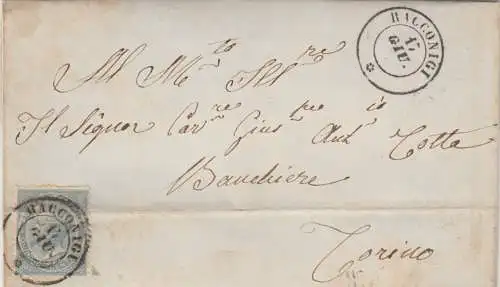 RACCONIGI
17
GIU.
Al M.to Ill.re
Il Signor Cav.re Gius.pe Ant.io Cotta
Banchiere
Torino
RACCONIGI
17
GIU.